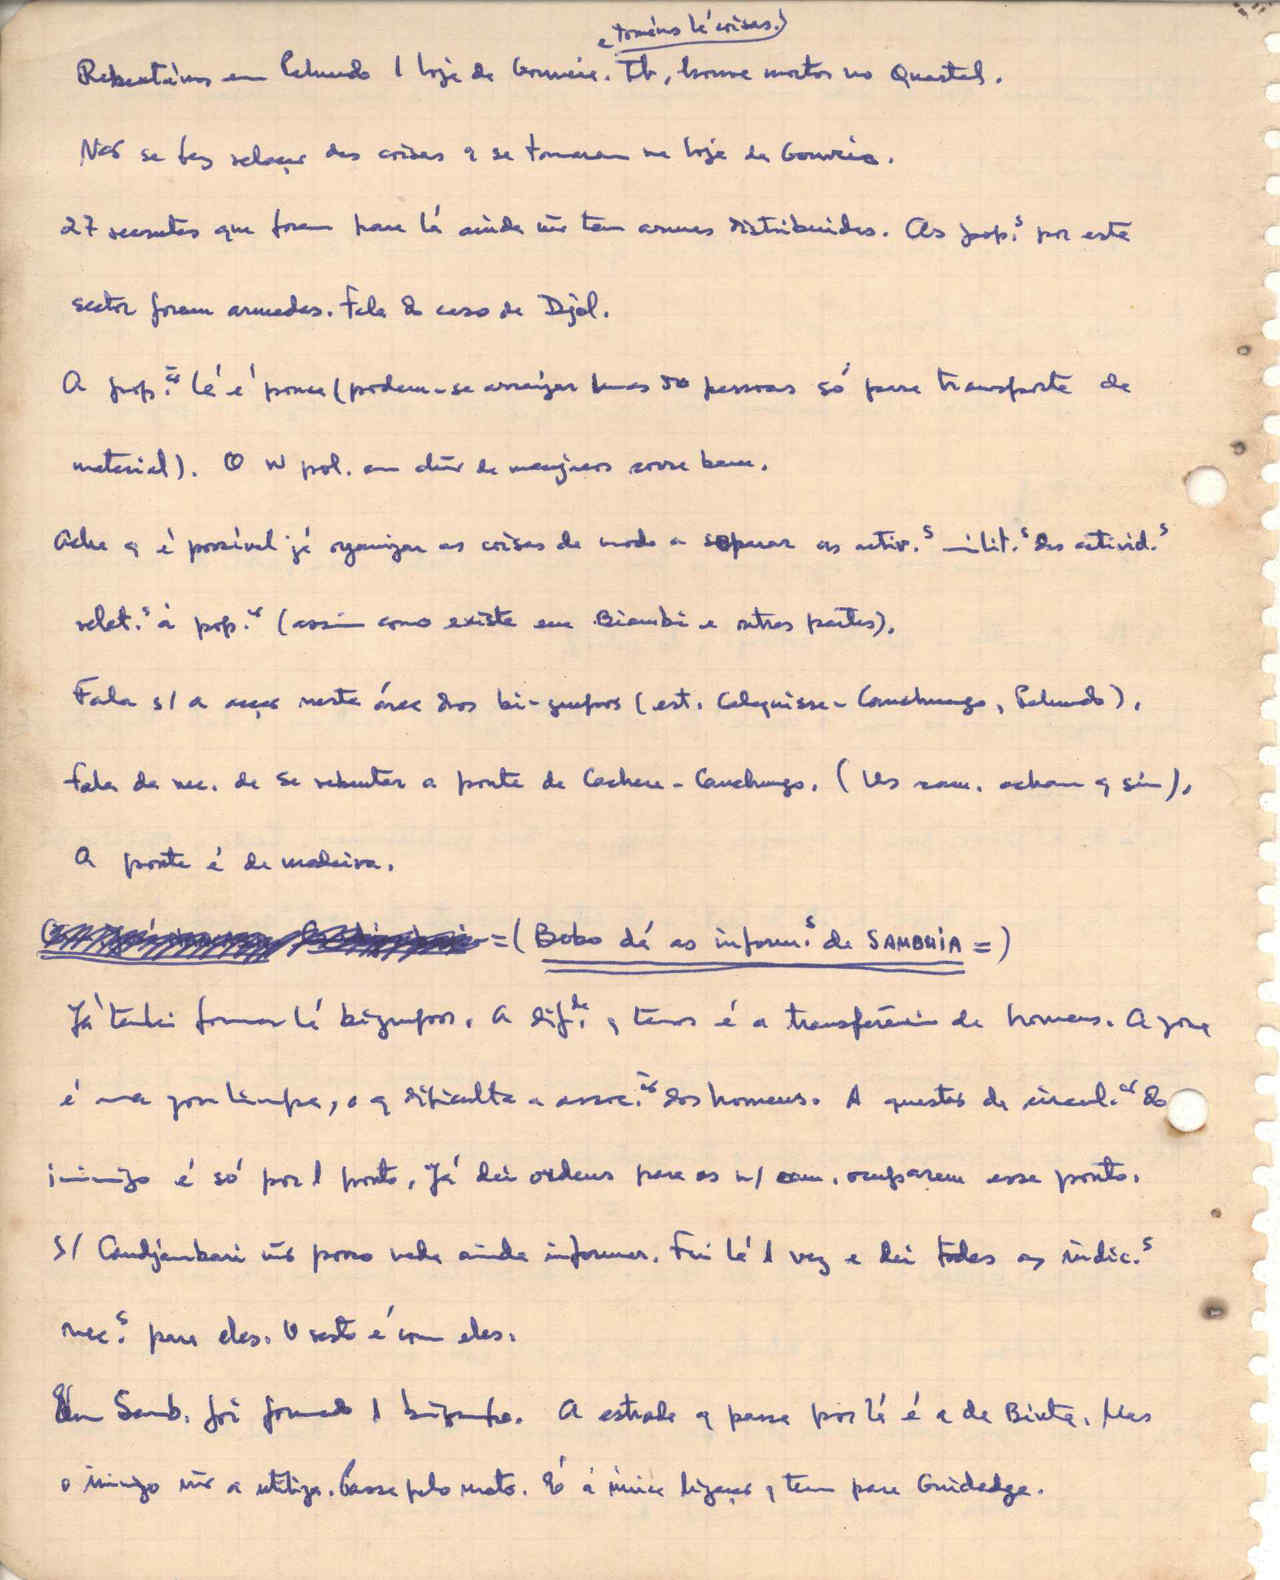 e tomámos lá coisas.)
Rebentámos em Pelundo 1 loja da Gouveia. Tb, houve mortos no Quartel.
Não se fez relação das coisas q se tomaram na loja da Gouveia.
27 recrutas que foram para lá ainda não tem armas distribuidas. As pop.s por este
sector foram armadas. Fala do caso de Djol.
A pop.ão lá é pouca (podem-se arranjar umas 50 pessoas só para transporte de
material). O W pol. em chão de manjacos corre bem.
Acha q é possível já organizar as coisas de modo a separar as activ.s milit.s das activid.s
relat.s à pop.ão (assim como existe em Biambi e outras partes).
Fala s/ a acção nesta área dos bi-grupos (est. Calequisse-Canchungo, Pelundo).
Fala da nec. de se rebentar a ponte de Cacheu-Canchungo. (Us cam. acham q sim).
A ponte é de madeira.
=(Bobo dá as inform.s de SAMBUIA=)
Já tentei formar lá bigrupos. A dif.de q temos é a transferência de homens. A zona
é uma zona limpa, o q dificulta a assoc.ão dos homens. A questão da circul.ão do
inimigo é só por 1 ponto. Já dei ordens para os n/ cam. ocuparem esse ponto.
S/ Candjambari não posso nada ainda informar. Fui lá 1 vez e dei todas as indic.s
nec.s para eles. O resto é com eles.
Em Samb. foi formado 1 bigrupo. A estrada q passa por lá é a de Binta. Mas
o inimigo não a utiliza. Passa pelo mato. É a única ligação q tem para Guidadge.